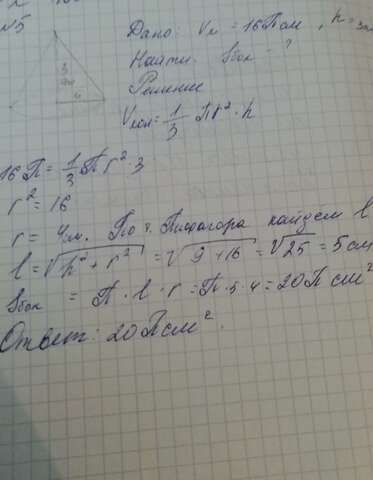 №5
Дано: Vк = 16П см, h = 3см
Найти: Sбок - ?
Решение
Vкон = 1/3 Пr² · h
3
см
4
16П = 1/3 П r² · 3
r² = 16
r = 4см. По т. Пифагора найдём l
l = √h² + r² = √9 + 16 = √25 = 5 см
Sбок = П · l · r = П · 5 · 4 = 20П см²
Ответ: 20П см²